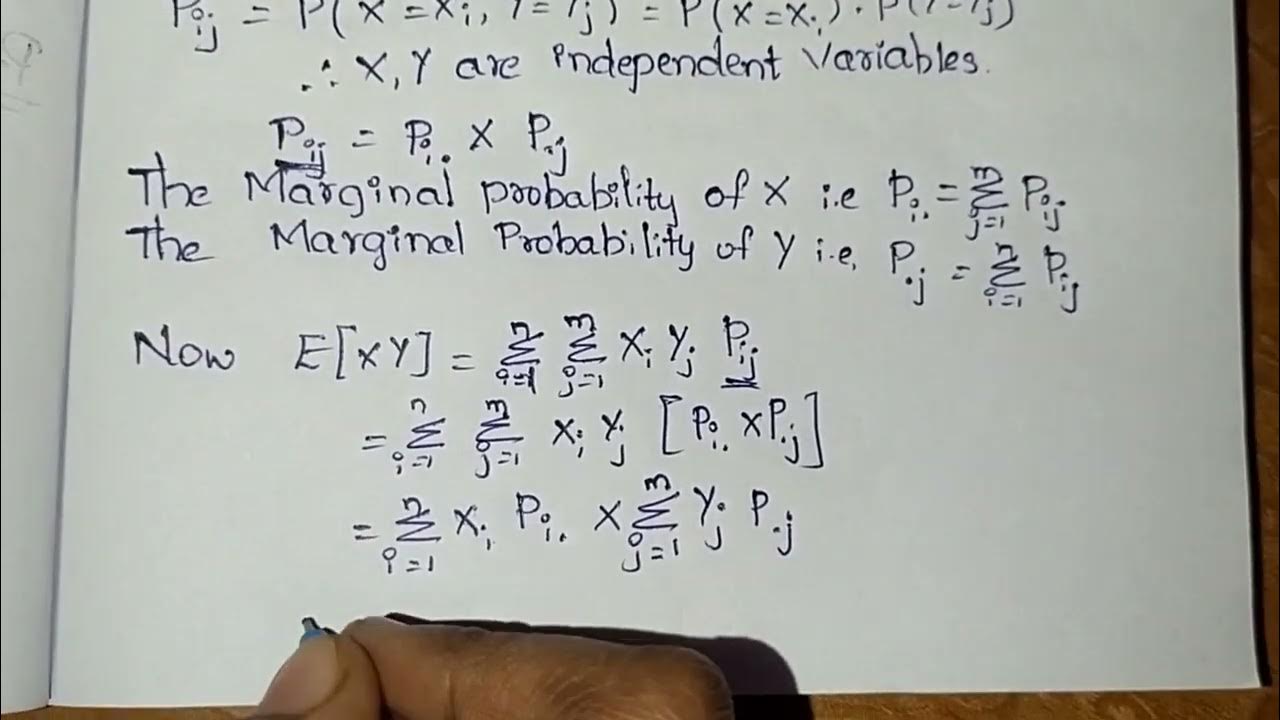 Pij = P(X=Xi, Y=Yj) = P(X=Xi) · P(Y=Yj)
∴ X, Y are independent Variables.
Pij = Pi. X P.j
The Marginal probability of X i.e Pi. = Σ_{j=1}^{m} Pij
The Marginal Probability of Y i.e, P.j = Σ_{i=1}^{n} Pij
Now E[XY] = Σ_{i=1}^{n} Σ_{j=1}^{m} Xi Yj Pij
= Σ_{i=1}^{n} Σ_{j=1}^{m} Xi Yj [Pi. X P.j]
= Σ_{i=1}^{n} Xi Pi. X Σ_{j=1}^{m} Yj P.j